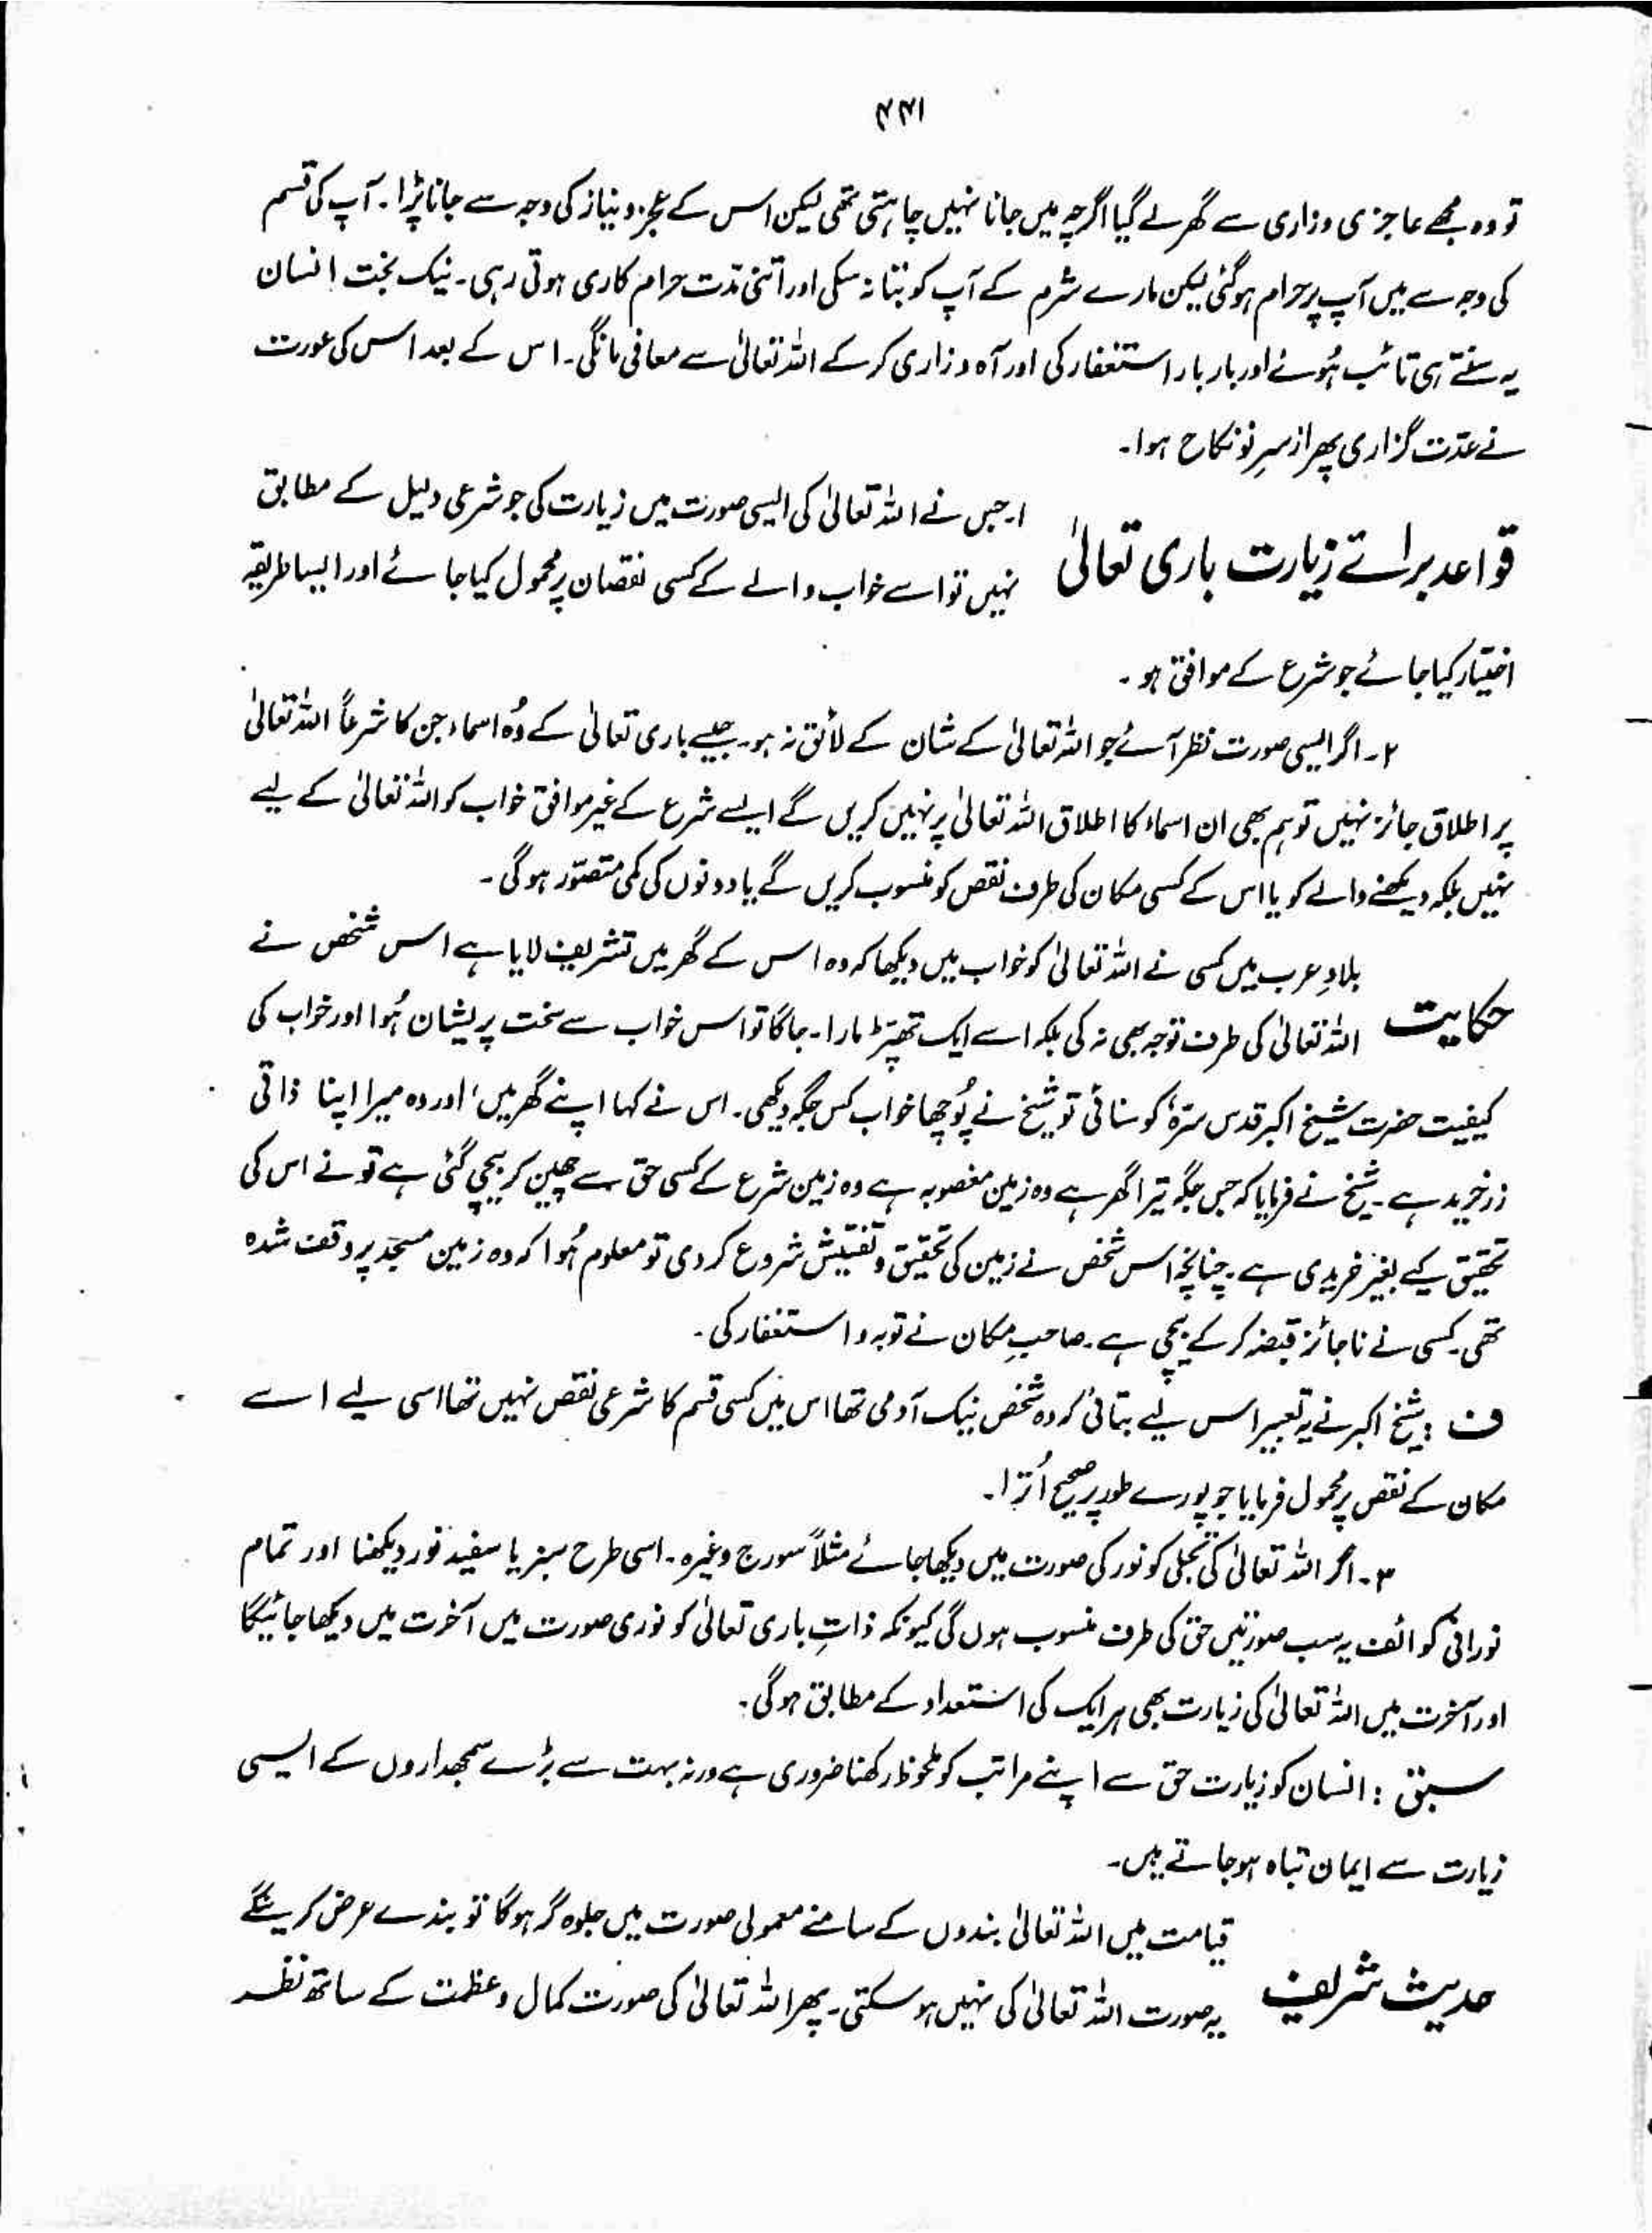 ۴۴۱
تو وہ مجھے عاجزی وزاری سے گھر لے گیا اگرچہ میں جانا نہیں چاہتی تھی لیکن اس کے عجز و نیاز کی وجہ سے جانا پڑا۔ آپ کی قسم
کی وجہ سے میں آپ پر حرام ہوگئی لیکن مارے شرم کے آپ کو بتا نہ سکی اور اتنی مدّت حرام کاری ہوتی رہی۔ نیک بخت انسان
یہ سنتے ہی تائب ہُوئے اور بار بار استغفار کی اور آہ و زاری کرکے اللہ تعالیٰ سے معافی مانگی۔ اس کے بعد اس کی عورت
نے عدّت گزاری پھر ازسرِنو نکاح ہوا۔
قواعد برائے زیارت باری تعالیٰ
۱۔ جس نے اللہ تعالیٰ کی ایسی صورت میں زیارت کی جو شرعی دلیل کے مطابق
نہیں تو اسے خواب والے کے کسی نقصان پر محمول کیا جائے اور ایسا طریقہ
اختیار کیا جائے جو شرع کے موافق ہو۔
۲۔ اگر ایسی صورت نظر آئے جو اللہ تعالیٰ کے شان کے لائق نہ ہو۔ جیسے باری تعالیٰ کے وُہ اسماء جن کا شرعاً اللہ تعالیٰ
پر اطلاق جائز نہیں تو ہم بھی ان اسماء کا اطلاق اللہ تعالیٰ پر نہیں کریں گے ایسے شرع کے غیر موافق خواب کو اللہ تعالیٰ کے لیے
نہیں بلکہ دیکھنے والے کو یا اس کے کسی مکان کی طرف نقص کو منسوب کریں گے یا دونوں کی کمی متصوّر ہوگی۔
حکایت
بلادِ عرب میں کسی نے اللہ تعالیٰ کو خواب میں دیکھا کہ وہ اس کے گھر میں تشریف لایا ہے اس شخص نے
اللہ تعالیٰ کی طرف توجہ بھی نہ کی بلکہ اسے ایک تھپّڑ مارا۔ جاگا تو اس خواب سے سخت پریشان ہُوا اور خواب کی
کیفیت حضرت شیخ اکبر قدس سرّہٗ کو سنائی تو شیخ نے پُوچھا خواب کس جگہ دیکھی۔ اس نے کہا اپنے گھر میں، اور وہ میرا اپنا ذاتی
زرخرید ہے۔ شیخ نے فرمایا کہ جس جگہ تیرا گھر ہے وہ زمین مغصوبہ ہے وہ زمین شرع کے کسی حق سے چھین کر بیچی گئی ہے تو نے اس کی
تحقیق کیے بغیر خریدی ہے۔ چنانچہ اس شخص نے زمین کی تحقیق و تفتیش شروع کر دی تو معلوم ہُوا کہ وہ زمین مسجد پر وقف شدہ
تھی۔ کسی نے ناجائز قبضہ کرکے بیچی ہے۔ صاحبِ مکان نے توبہ و استغفار کی۔
ف : شیخ اکبر نے یہ تعبیر اس لیے بتائی کہ وہ شخص نیک آدمی تھا اس میں کسی قسم کا شرعی نقص نہیں تھا اسی لیے اسے
مکان کے نقص پر محمول فرمایا جو پورے طور پر صحیح اُترا۔
۳۔ اگر اللہ تعالیٰ کی تجلی کو نور کی صورت میں دیکھا جائے مثلاً سورج وغیرہ۔ اسی طرح سبز یا سفید نور دیکھنا اور تمام
نورانی کوائف یہ سب صورتیں حق کی طرف منسوب ہوں گی کیونکہ ذاتِ باری تعالیٰ کو نوری صورت میں آخرت میں دیکھا جائیگا
اور آخرت میں اللہ تعالیٰ کی زیارت بھی ہر ایک کی استعداد کے مطابق ہوگی۔
سبق : انسان کو زیارت حق سے اپنے مراتب کو ملحوظ رکھنا ضروری ہے ورنہ بہت سے بڑے سمجھداروں کے ایسی
زیارت سے ایمان تباہ ہوجاتے ہیں۔
حدیث شریف
قیامت میں اللہ تعالیٰ بندوں کے سامنے معمولی صورت میں جلوہ گر ہوگا تو بندے عرض کرینگے
یہ صورت اللہ تعالیٰ کی نہیں ہوسکتی۔ پھر اللہ تعالیٰ کی صورت کمال و عظمت کے ساتھ نظر